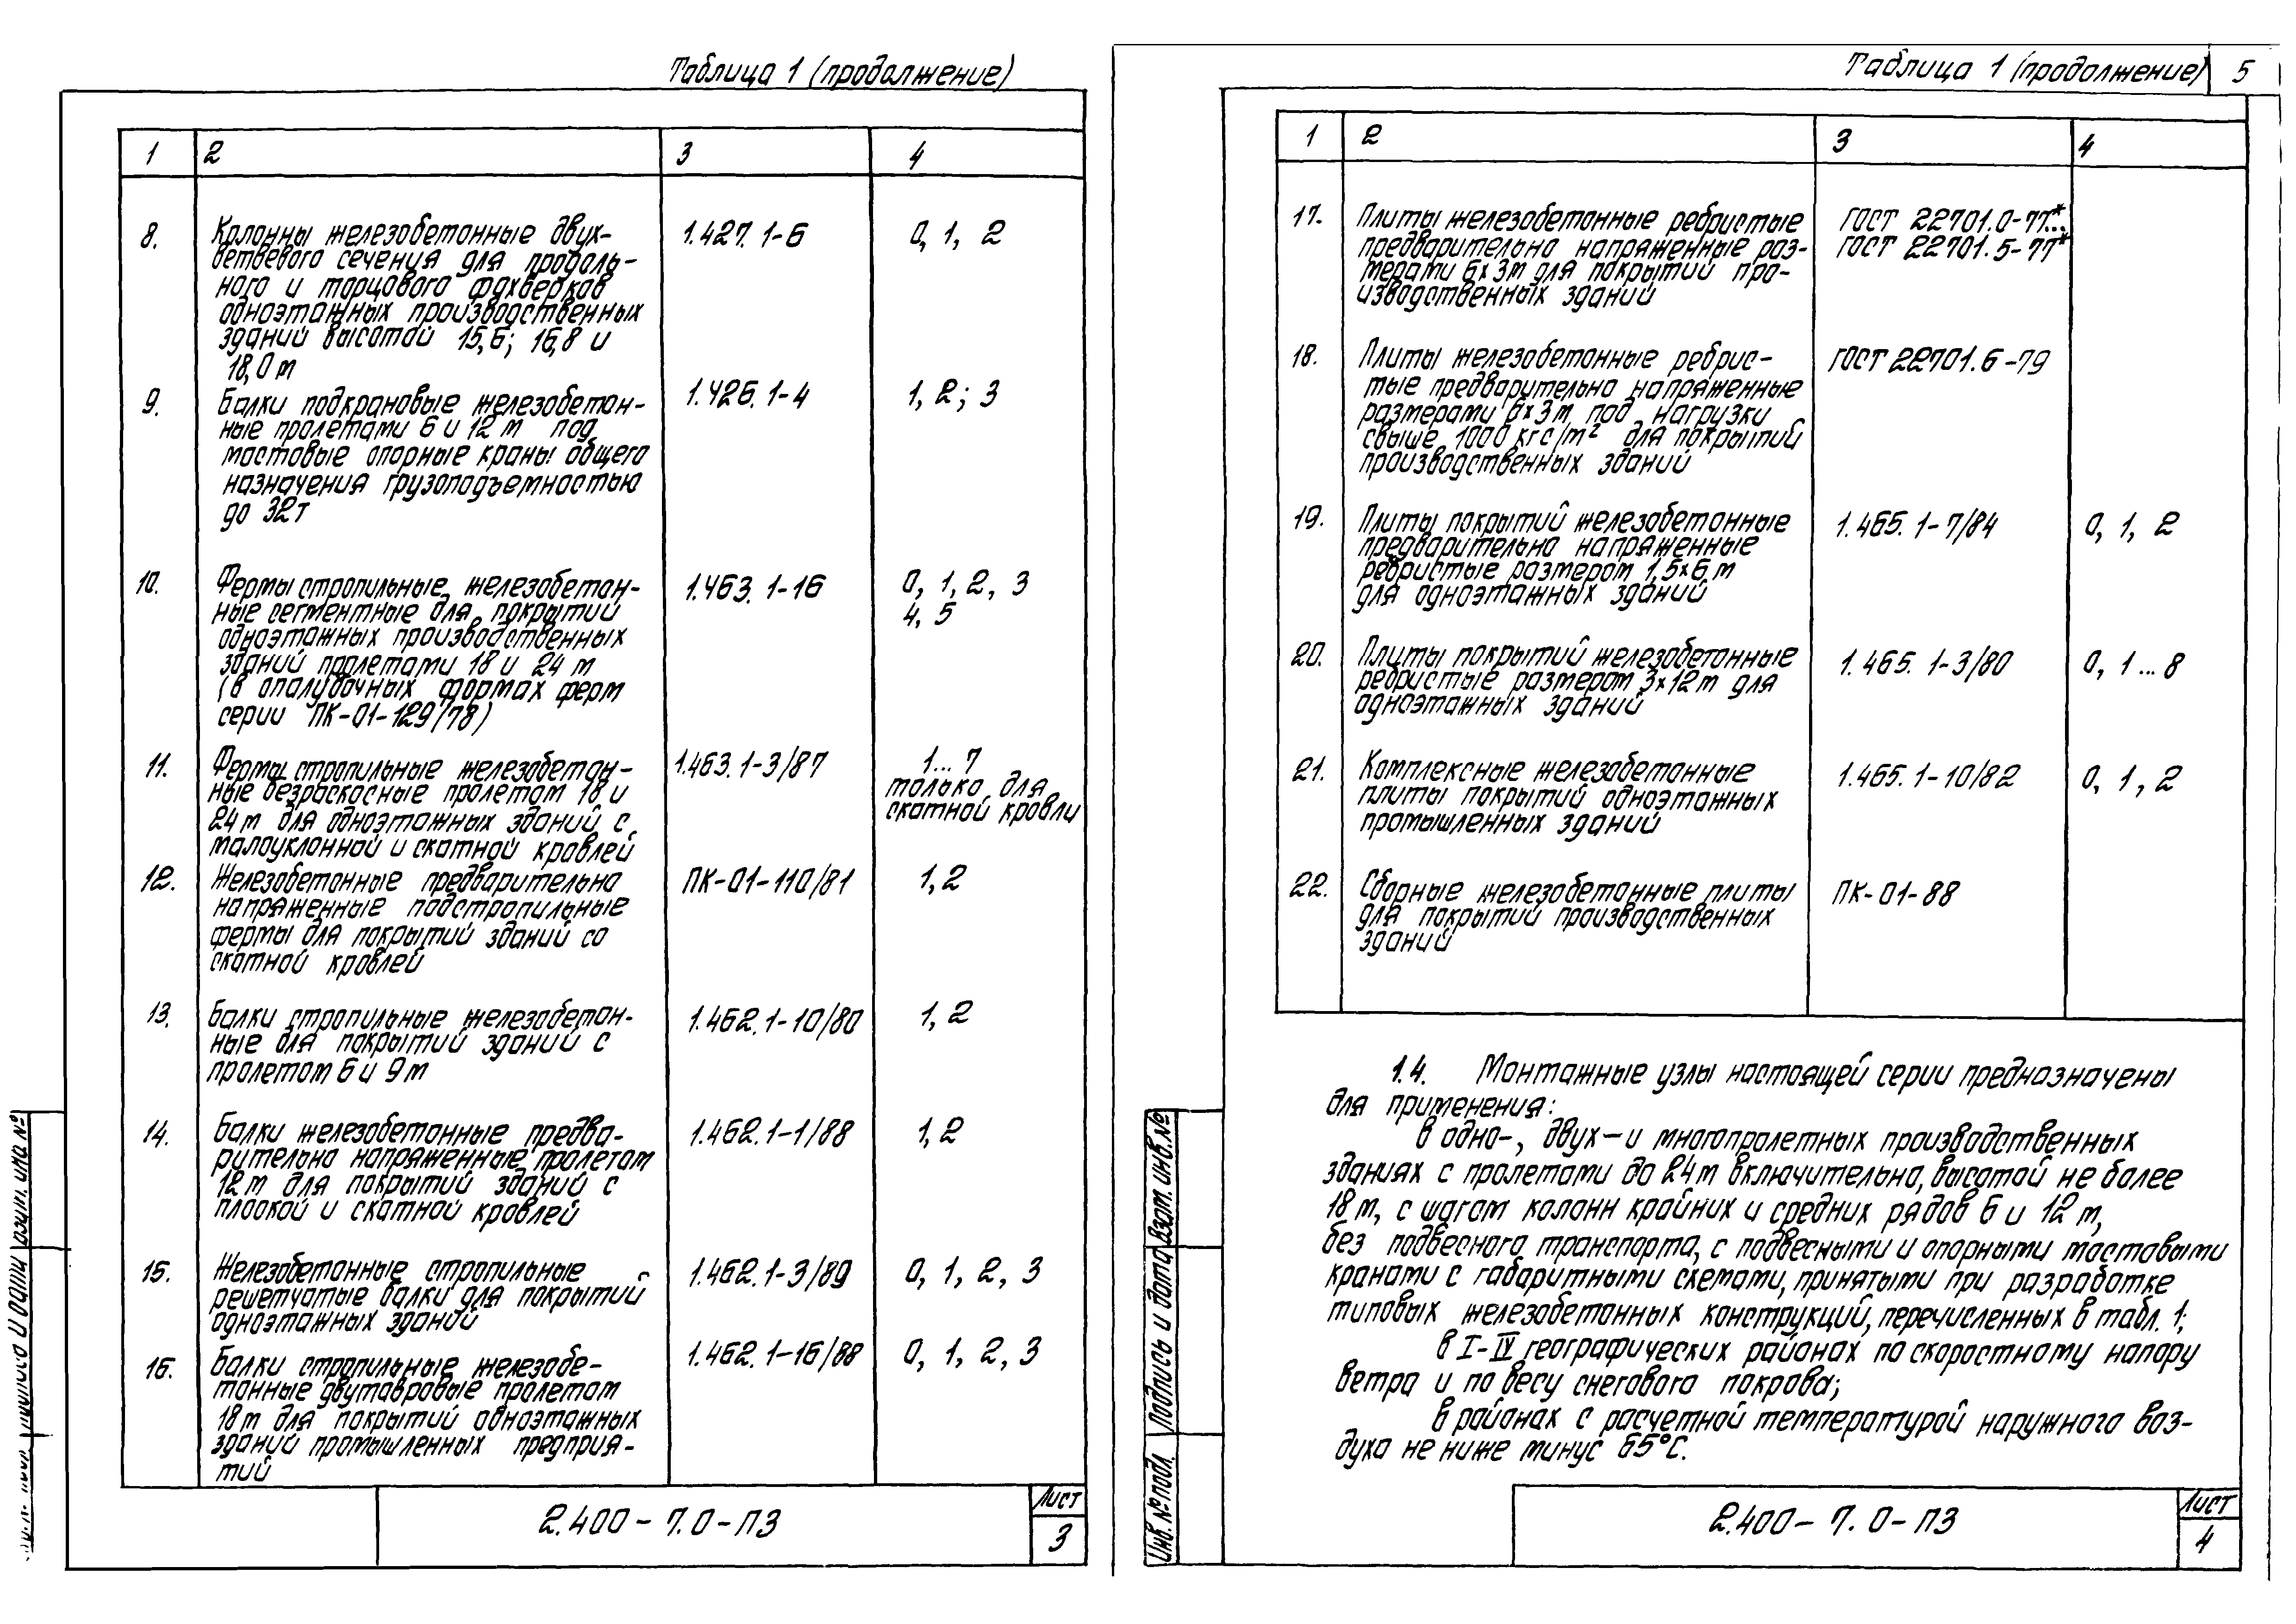 Таблица 1 (продолжение)
1 2 3 4
8. Колонны железобетонные двух- 1.427.1-6 0, 1, 2
ветвевого сечения для продоль-
ного и торцового фахверков
одноэтажных производственных
зданий высотой 15,6; 16,8 и
18,0 м
9. Балки подкрановые железобетон- 1.426.1-4 1, 2; 3
ные пролетами 6 и 12 м под
мостовые опорные краны общего
назначения грузоподъемностью
до 32т
10. Фермы стропильные железобетон- 1.463.1-16 0, 1, 2, 3
ные сегментные для покрытий 4, 5
одноэтажных производственных
зданий пролетами 18 и 24 м
(в опалубочных формах ферм
серии ПК-01-129/78)
11. Фермы стропильные железобетон- 1.463.1-3/87 1...7
ные безраскосные пролетом 18 и только для
24 м для одноэтажных зданий с скатной кровли
малоуклонной и скатной кровлей
12. Железобетонные предварительно ПК-01-110/81 1,2
напряженные подстропильные
фермы для покрытий зданий со
скатной кровлей
13. Балки стропильные железобетон- 1.462.1-10/80 1, 2
ные для покрытий зданий с
пролетом 6 и 9 м
14. Балки железобетонные предва- 1.462.1-1/88 1,2
рительно напряженные пролетом
12 м для покрытий зданий с
плоской и скатной кровлей
15. Железобетонные стропильные 1.462.1-3/89 0, 1, 2, 3
решетчатые балки для покрытий
одноэтажных зданий
16. Балки стропильные железобе- 1.462.1-16/88 0, 1, 2, 3
тонные двутавровые пролетом
18 м для покрытий одноэтажных
зданий промышленных предприя-
тий
2.400-7.0-ПЗ
Лист
3
Таблица 1 (продолжение) 5
1 2 3 4
17. Плиты железобетонные ребристые ГОСТ 22701.0-77*...
предварительно напряженные раз- ГОСТ 22701.5-77*
мерами 6х3м для покрытий про-
изводственных зданий
18. Плиты железобетонные ребрис- ГОСТ 22701.6-79
тые предварительно напряженные
размерами 6х3м под нагрузки
свыше 1000 кгс/м² для покрытий
производственных зданий
19. Плиты покрытий железобетонные 1.465.1-7/84 0, 1, 2
предварительно напряженные
ребристые размером 1,5х6 м
для одноэтажных зданий
20. Плиты покрытий железобетонные 1.465.1-3/80 0, 1...8
ребристые размером 3х12 м для
одноэтажных зданий
21. Комплексные железобетонные 1.465.1-10/82 0, 1, 2
плиты покрытий одноэтажных
промышленных зданий
22. Сборные железобетонные плиты ПК-01-88
для покрытий производственных
зданий
1.4. Монтажные узлы настоящей серии предназначены
для применения:
в одно-, двух- и многопролетных производственных
зданиях с пролетами до 24 м включительно, высотой не более
18 м, с шагом колонн крайних и средних рядов 6 и 12 м,
без подвесного транспорта, с подвесными и опорными мостовыми
кранами с габаритными схемами, принятыми при разработке
типовых железобетонных конструкций, перечисленных в табл. 1;
в I-IV географических районах по скоростному напору
ветра и по весу снегового покрова;
в районах с расчетной температурой наружного воз-
духа не ниже минус 65°С.
Инв. № подл. Подпись и дата Взам. инв. №
2.400-7.0-ПЗ
Лист
4